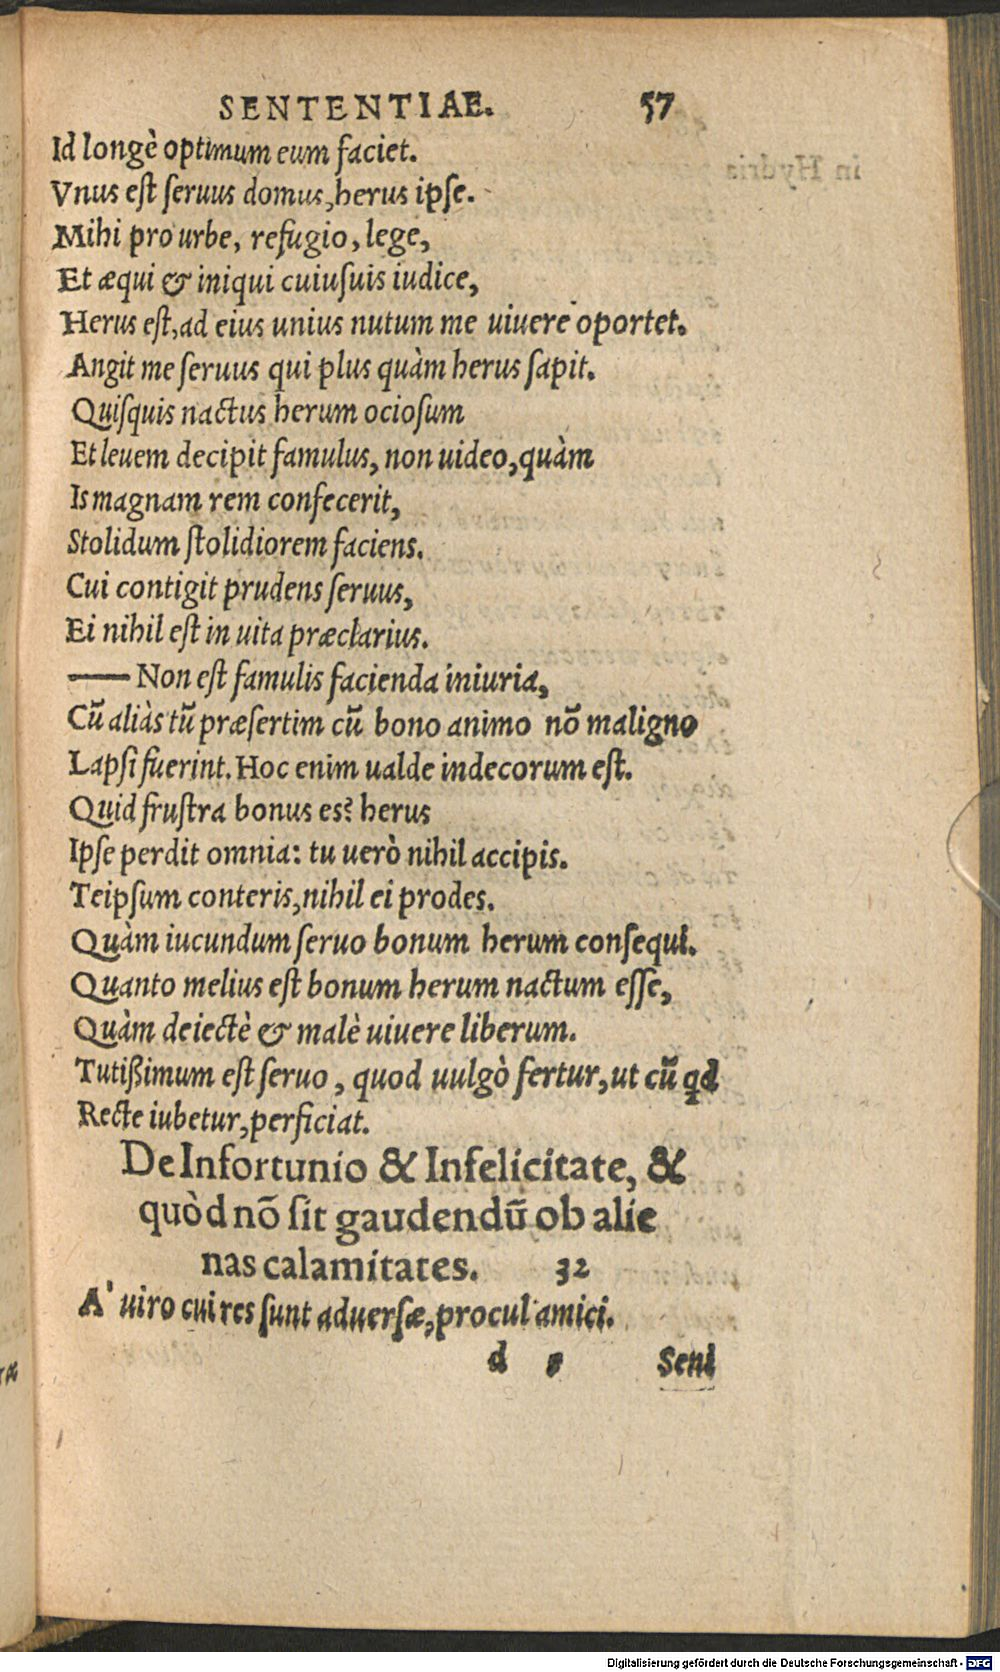 SENTENTIAE. 57
Id longè optimum eum faciet.
Vnus est seruus domus, herus ipse.
Mihi pro urbe, refugio, lege,
Et æqui & iniqui cuiusuis iudice,
Herus est, ad eius unius nutum me uiuere oportet.
Angit me seruus qui plus quàm herus sapit.
Quisquis nactus herum ociosum
Et leuem decipit famulus, non uideo, quàm
Is magnam rem confecerit,
Stolidum stolidiorem faciens.
Cui contigit prudens seruus,
Ei nihil est in uita præclarius.
—— Non est famulis facienda iniuria,
Cũ aliàs tũ præsertim cũ bono animo nõ maligno
Lapsi fuerint. Hoc enim ualde indecorum est.
Quid frustra bonus es? herus
Ipse perdit omnia: tu uerò nihil accipis.
Teipsum conteris, nihil ei prodes.
Quàm iucundum seruo bonum herum consequi.
Quanto melius est bonum herum nactum esse,
Quàm deiectè & malè uiuere liberum.
Tutißimum est seruo, quod uulgò fertur, ut cũ qd
Recte iubetur, perficiat.
De Infortunio & Infelicitate, &
quòd nõ sit gaudendũ ob alie
nas calamitates. 32
A' uiro cui res sunt aduersæ, procul amici.
d Seni
Digitalisierung gefördert durch die Deutsche Forschungsgemeinschaft - DFG